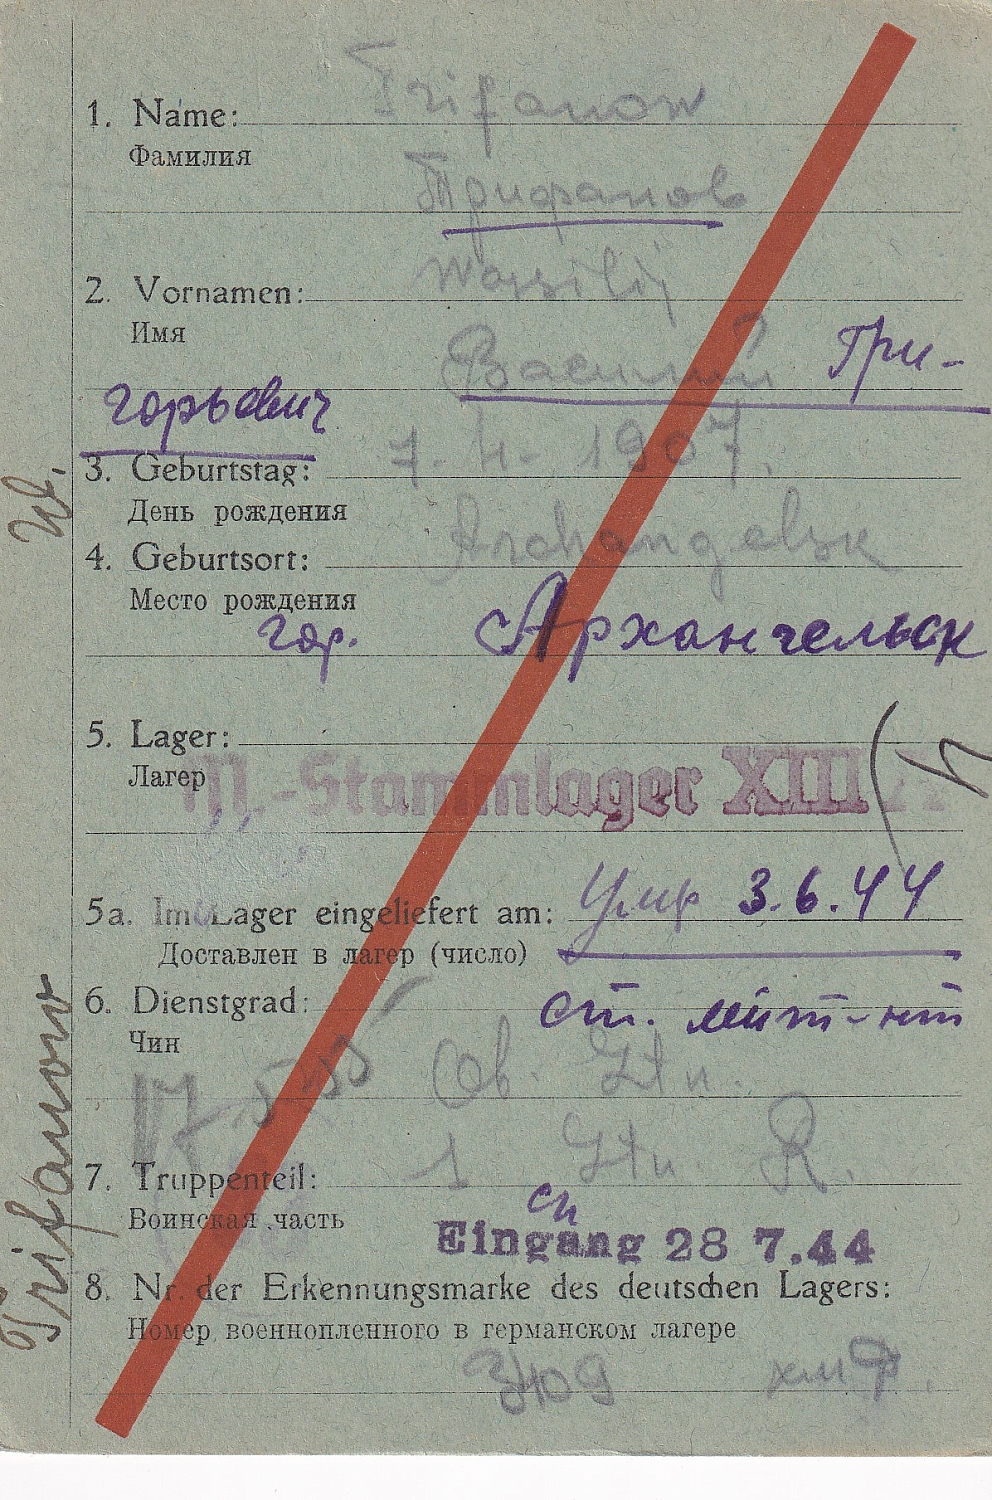 Trifanow
1. Name:
Фамилия
Трифанов
Wassilij
2. Vornamen:
Имя
Василий Гри-
горьевич
7. 4. 1907.
3. Geburtstag:
День рождения
Archangelsk
4. Geburtsort:
Место рождения
гор. Архангельск
5. Lager:
Лагер
M.-Stammlager XIII
5a. Im Lager eingeliefert am: Умер 3.6.44
Доставлен в лагер (число)
6. Dienstgrad: ст. лейт-нт
Чин
Ob. Ltn.
1 Ltn. R.
7. Truppenteil:
Воинская часть
Eingang 28 7.44
8. Nr. der Erkennungsmarke des deutschen Lagers:
Номер военнопленного в германском лагере
Trifanow W.